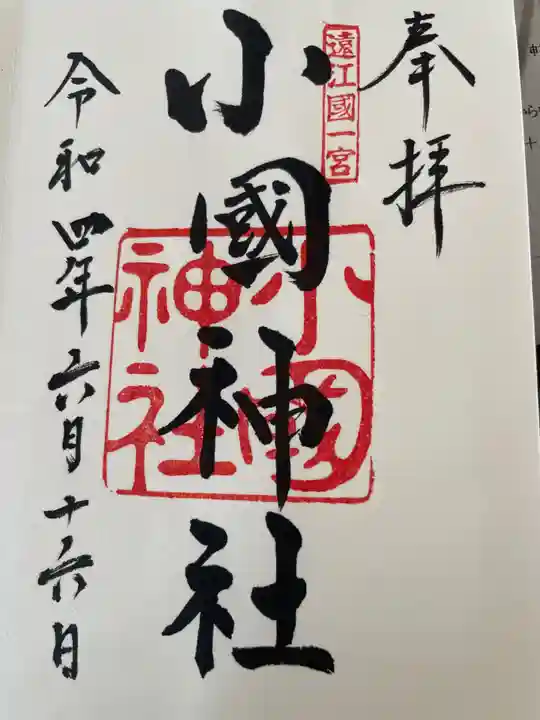 奉拝
遠江國一宮
小國神社
小國神社
令和四年六月十六日